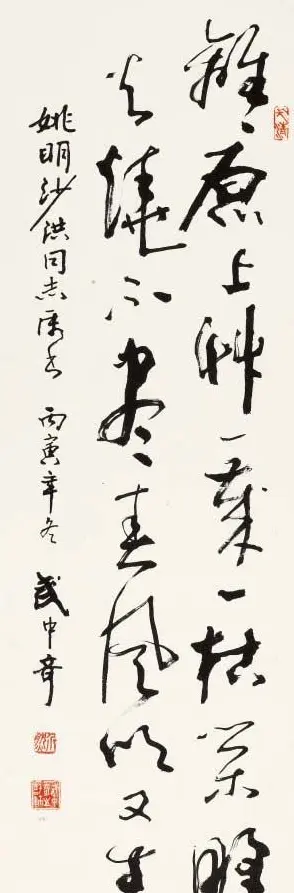 離〻原上艸一歲一枯榮野
火燒不尽春風吹又生
姚明沙洪同志属书 丙寅年冬 武中奇